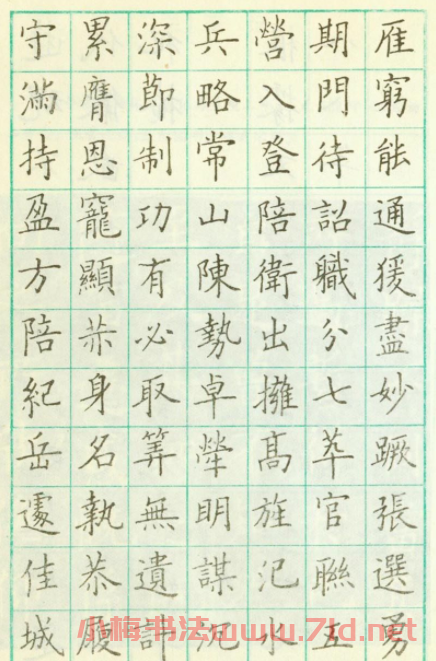 雁窮能通猨盡妙蹶張選勇
期門待詔職分七萃官聯五
營入登陪衛出擁髙旌汜水
兵略常山陳勢卓犖明謀沉
深節制功有必取筭無遺計
累膺恩寵顯身名執恭履
守滿持盈方陪紀岳遽佳城
小梅书法www.7td.net